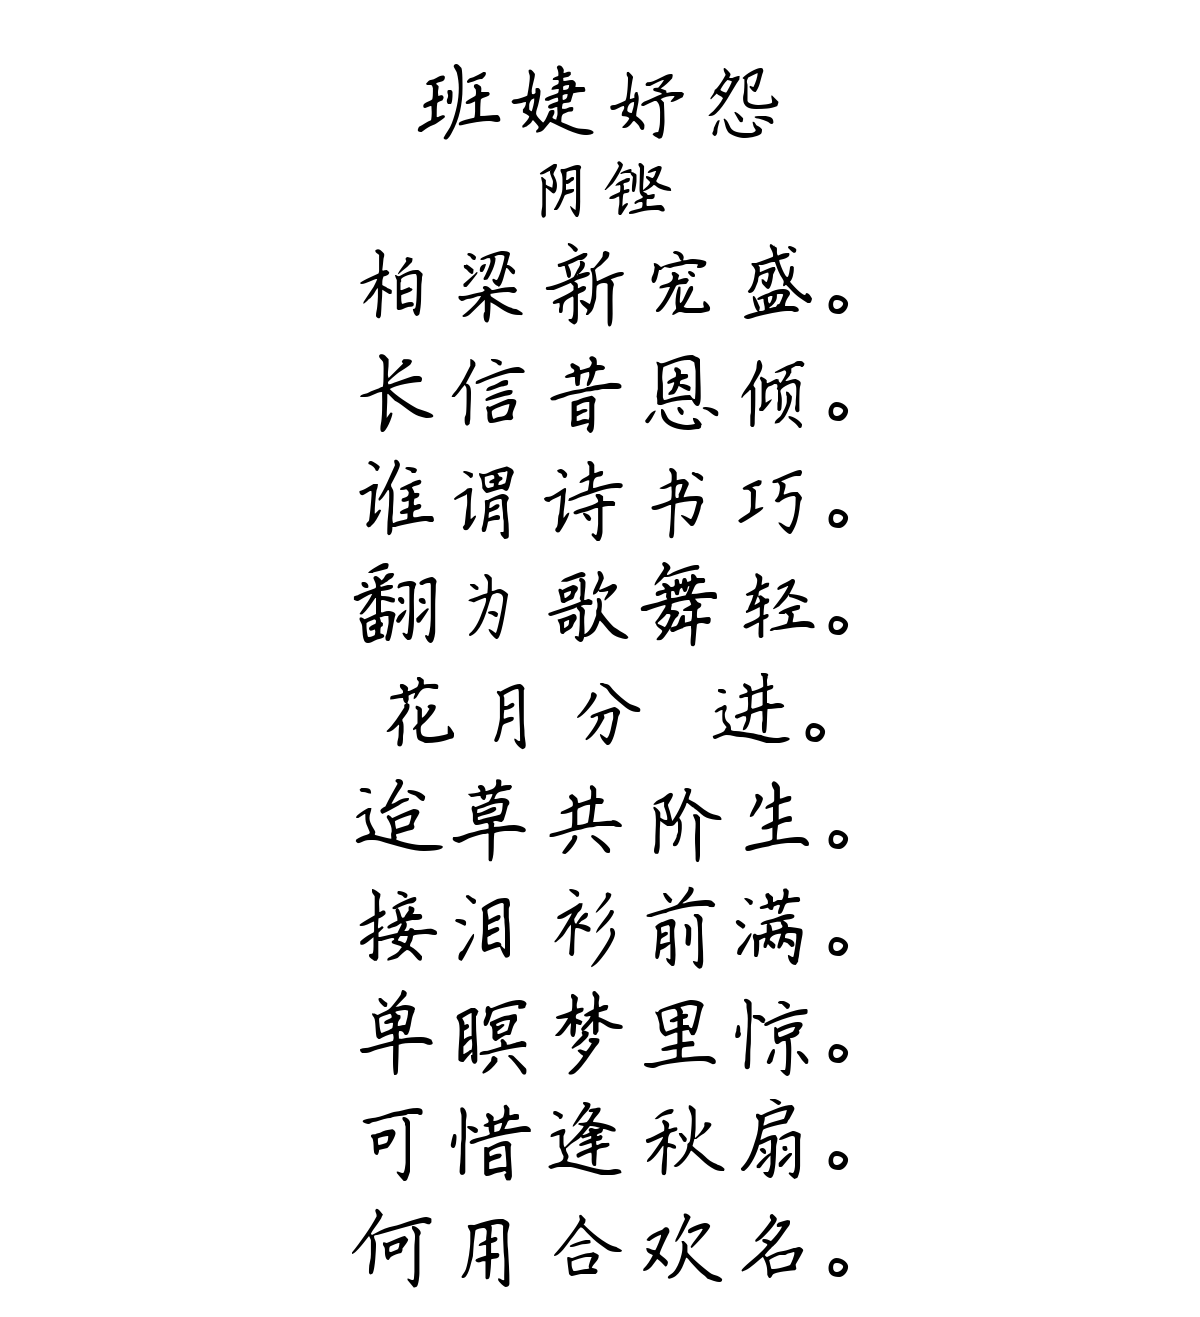 班婕妤怨
阴铿
柏梁新宠盛。
长信昔恩倾。
谁谓诗书巧。
翻为歌舞轻。
花月分 进。
迨草共阶生。
接泪衫前满。
单瞑梦里惊。
可惜逢秋扇。
何用合欢名。